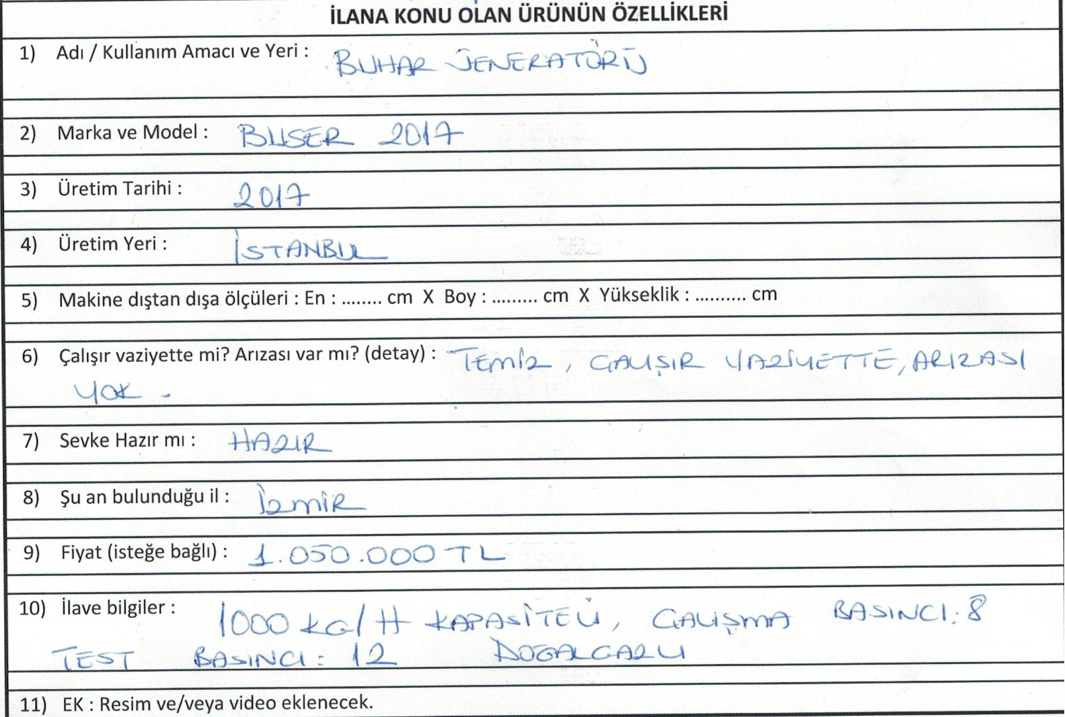 İLANA KONU OLAN ÜRÜNÜN ÖZELLİKLERİ
1) Adı / Kullanım Amacı ve Yeri : BUHAR JENERATÖRÜ
2) Marka ve Model : BUSER 2017
3) Üretim Tarihi : 2017
4) Üretim Yeri : İSTANBUL
5) Makine dıştan dışa ölçüleri : En : ........ cm X Boy : ......... cm X Yükseklik : .......... cm
6) Çalışır vaziyette mi? Arızası var mı? (detay) : TEMİZ, ÇALIŞIR VAZİYETTE, ARIZASI
YOK.
7) Sevke Hazır mı : HAZIR
8) Şu an bulunduğu il : İZMİR
9) Fiyat (isteğe bağlı) : 1.050.000 TL
10) İlave bilgiler : 1000 KG/H KAPASİTELİ, ÇALIŞMA BASINCI: 8
TEST BASINCI: 12 DOĞALGAZLI
11) EK : Resim ve/veya video eklenecek.